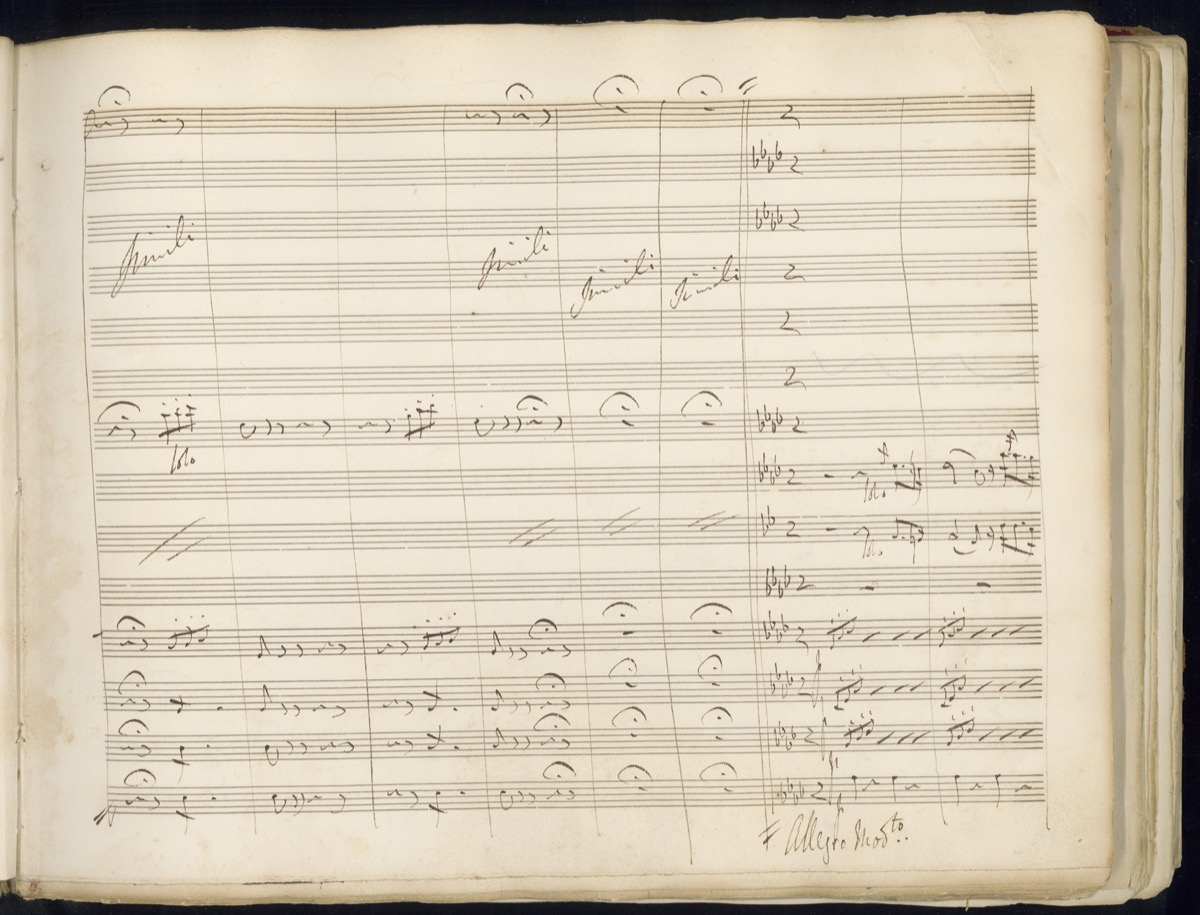 simili
simili
simili
simili
solo
solo
solo
Allegro Modto.